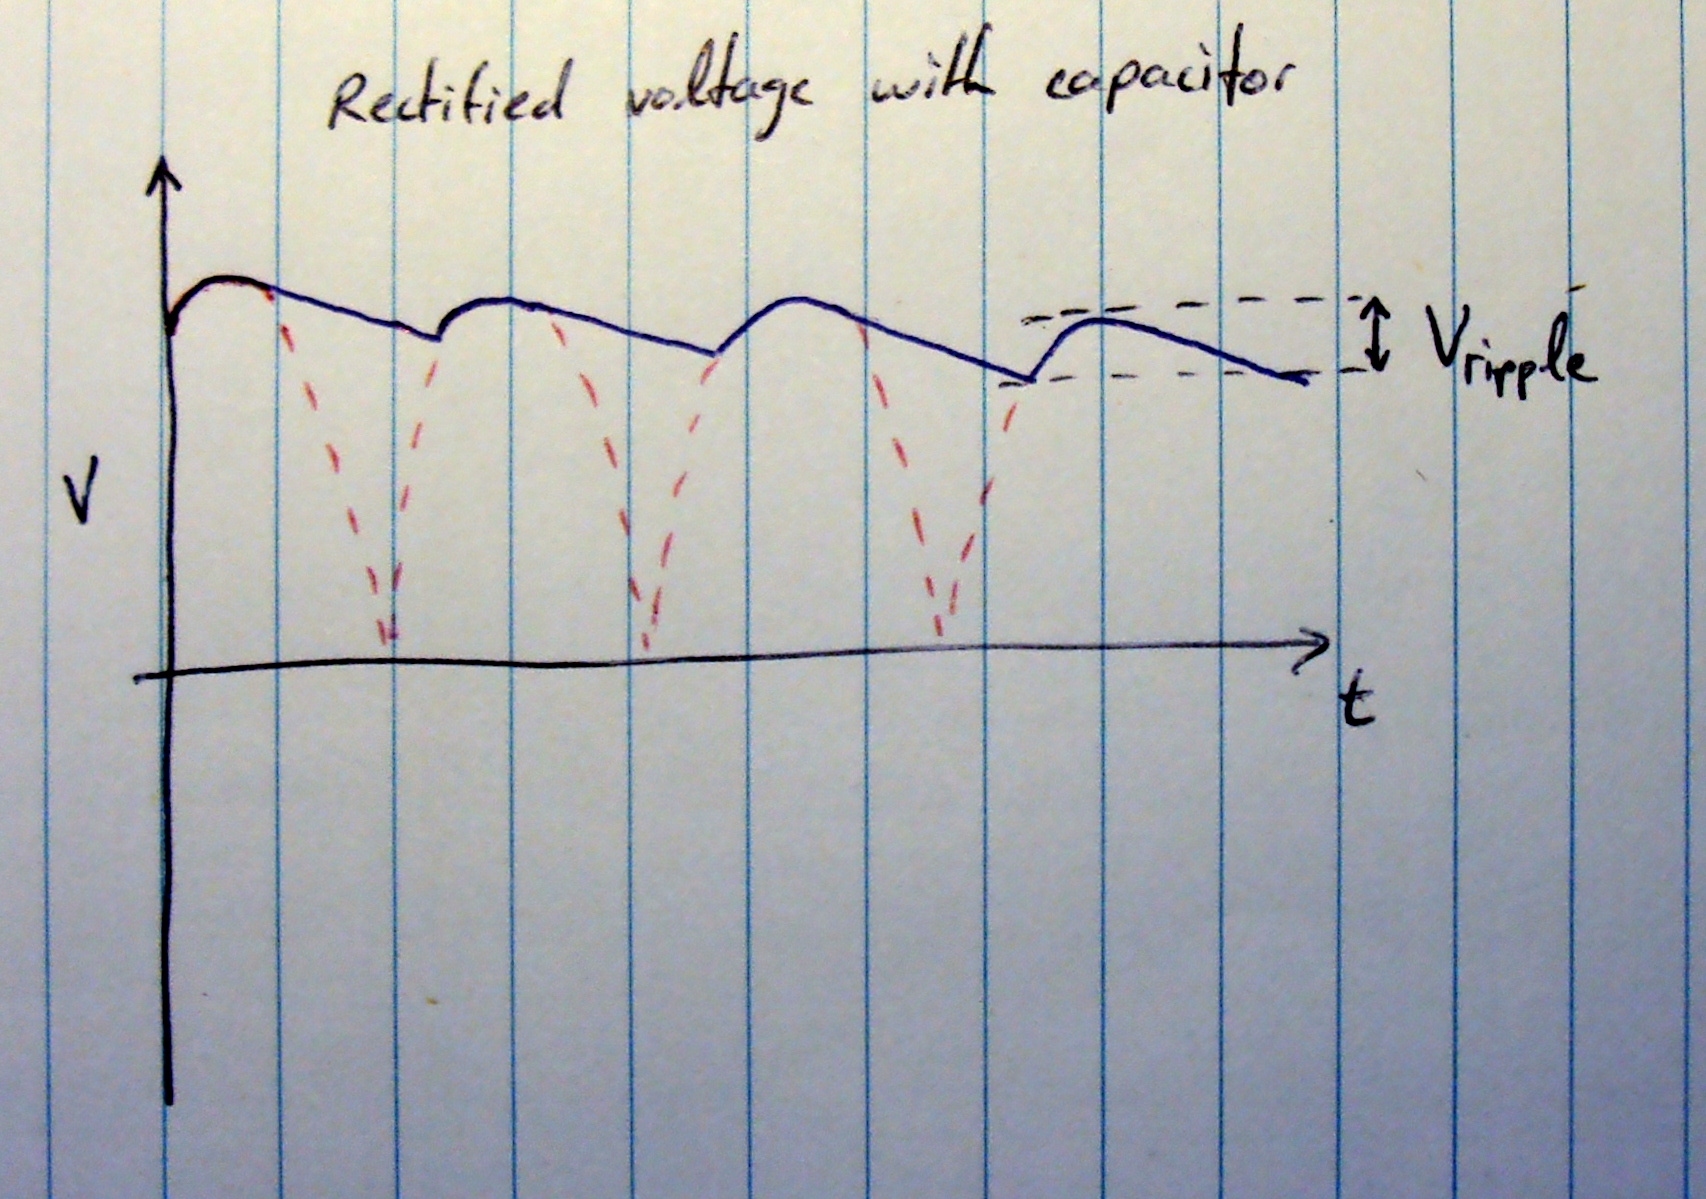 Rectified voltage with capacitor
Vripple
V
t